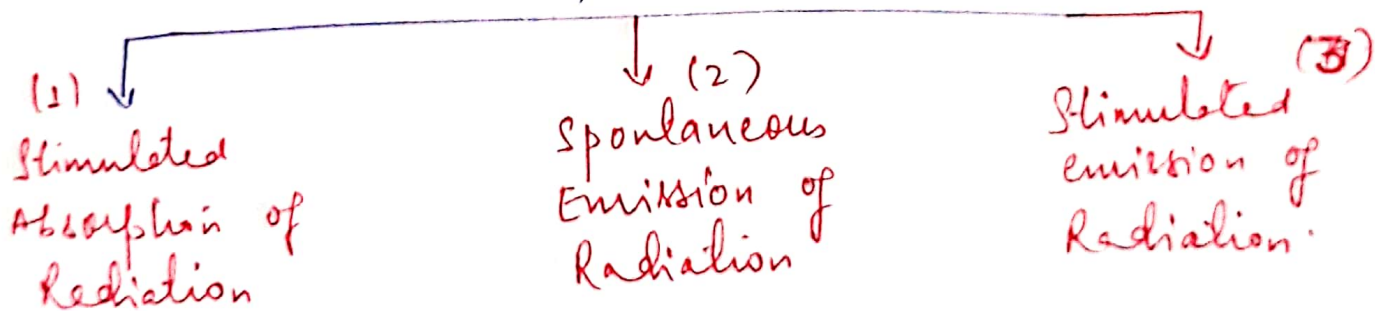 (1)
Stimulated
Absorption of
Radiation
(2)
Spontaneous
Emission of
Radiation
(3)
Stimulated
emission of
Radiation.